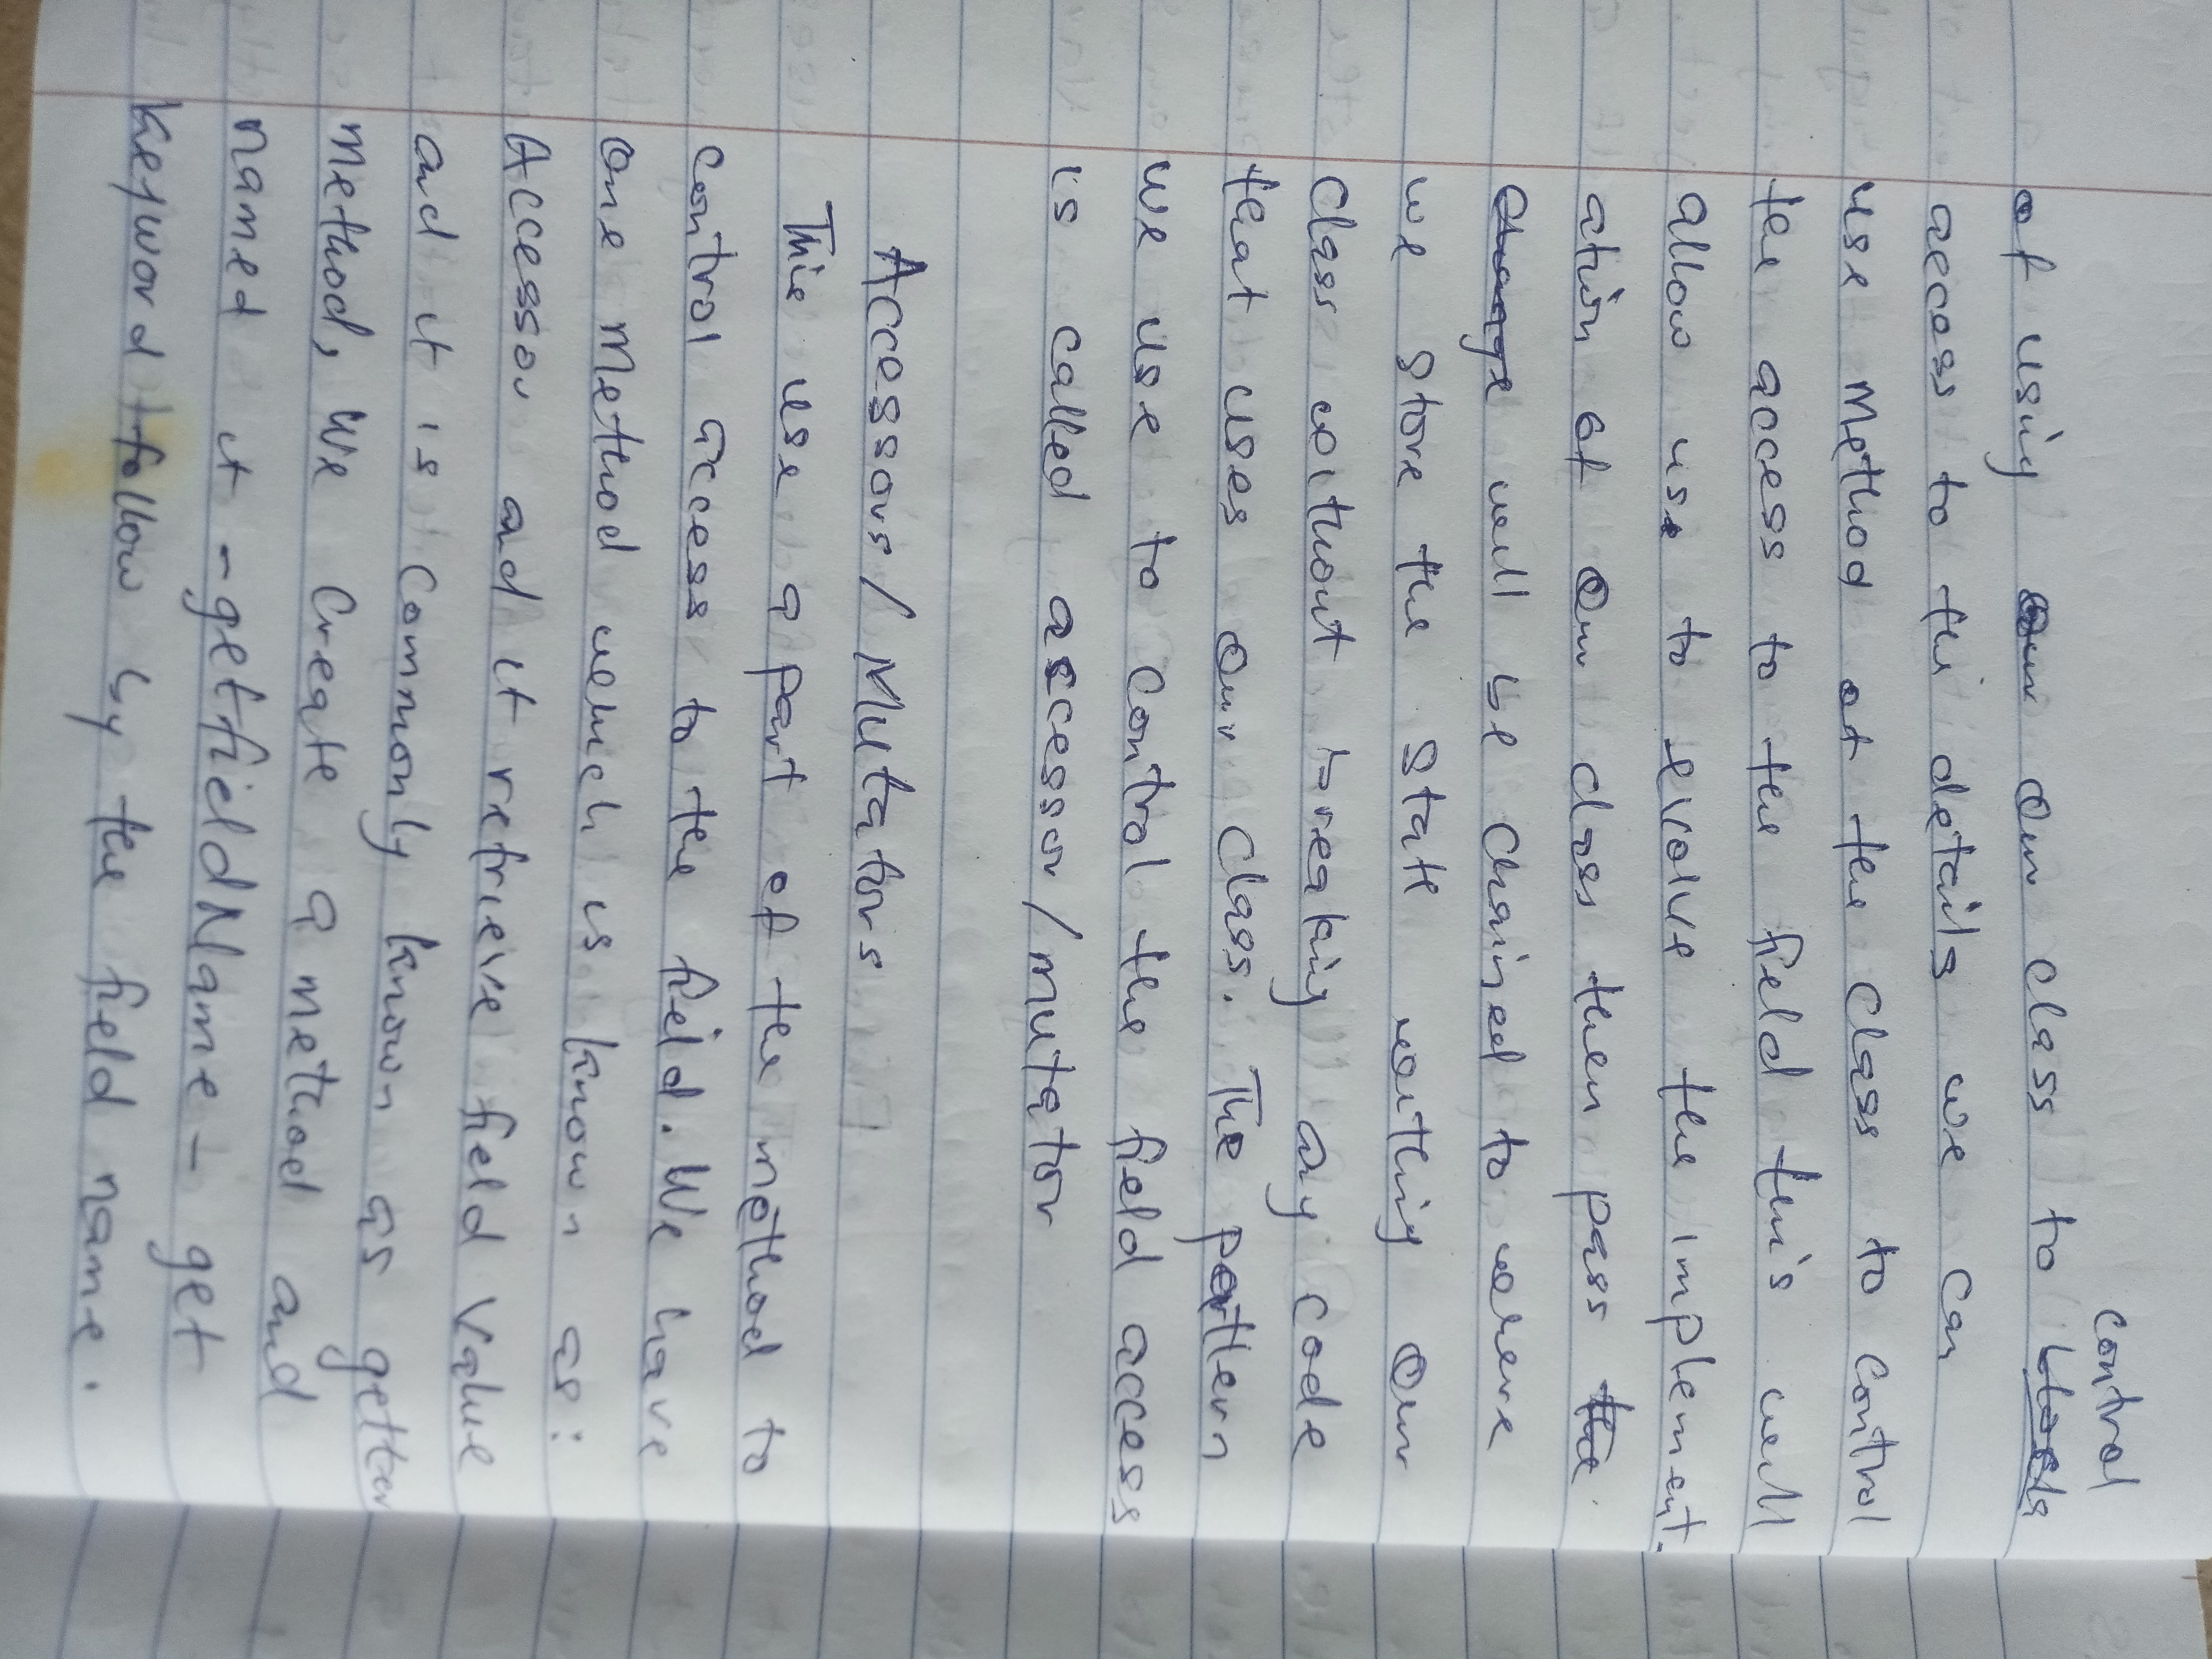 control
of using our class to
access to the details we can
use method of the class to control
the access to the field this will
allow us to evolve the implement-
ation of our class then pass the
will be chained to where
we store the state withing our
class without breaking any code
that uses our class. The pattern
we use to control the field access
is called ascessor/mutator
Accessors/Mutators
This use a part of the method to
control access to the feild. We have
one method which is known as:
Accessor and it retrieve field value
and it is commonly known as getter
method, We create a method and
named it -getfieldName- get
keyword follow by the field name.